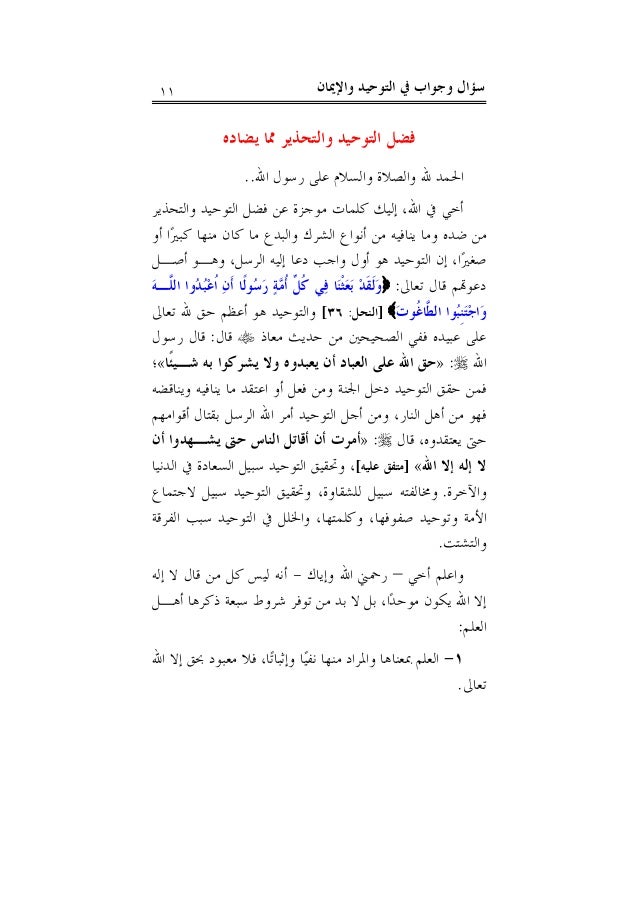 سؤال وجواب في التوحيد والإيمان ١١
فضل التوحيد والتحذير مما يضاده
الحمد لله والصلاة والسلام على رسول الله..
أخي في الله، إليك كلمات موجزة عن فضل التوحيد والتحذير
من ضده وما ينافيه من أنواع الشرك والبدع ما كان منها كبيرًا أو
صغيرًا، إن التوحيد هو أول واجب دعا إليه الرسل، وهـــو أصـــل
دعوتهم قال تعالى: ﴿وَلَقَدْ بَعَثْنَا فِي كُلِّ أُمَّةٍ رَسُولًا أَنِ اُعْبُدُوا اللَّـــهَ
وَاجْتَنِبُوا الطَّاغُوتَ﴾ [النحل: ٣٦] والتوحيد هو أعظم حق لله تعالى
على عبيده ففي الصحيحين من حديث معاذ ﷺ قال: قال رسول
الله ﷺ: «حق الله على العباد أن يعبدوه ولا يشركوا به شـــيئًا»؛
فمن حقق التوحيد دخل الجنة ومن فعل أو اعتقد ما ينافيه ويناقضه
فهو من أهل النار، ومن أجل التوحيد أمر الله الرسل بقتال أقوامهم
حتى يعتقدوه، قال ﷺ: «أمرت أن أقاتل الناس حتى يشـــهدوا أن
لا إله إلا الله» [متفق عليه]، وتحقيق التوحيد سبيل السعادة في الدنيا
والآخرة. ومخالفته سبيل للشقاوة، وتحقيق التوحيد سبيل لاجتماع
الأمة وتوحيد صفوفها، وكلمتها، والخلل في التوحيد سبب الفرقة
والتشتت.
واعلم أخي – رحمني الله وإياك – أنه ليس كل من قال لا إله
إلا الله يكون موحدًا، بل لا بد من توفر شروط سبعة ذكرها أهـــل
العلم:
١– العلم بمعناها والمراد منها نفيًا وإثباتًا، فلا معبود بحق إلا الله
تعالى.